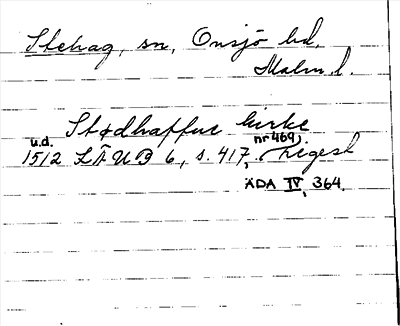 Stehag, sn, Onsjö hd,
Malm. l.
Stødhaffue kirke
u.d. nr 469)
1512 LÄUB 6, s. 417, (regest
ÄDA IV, 364.